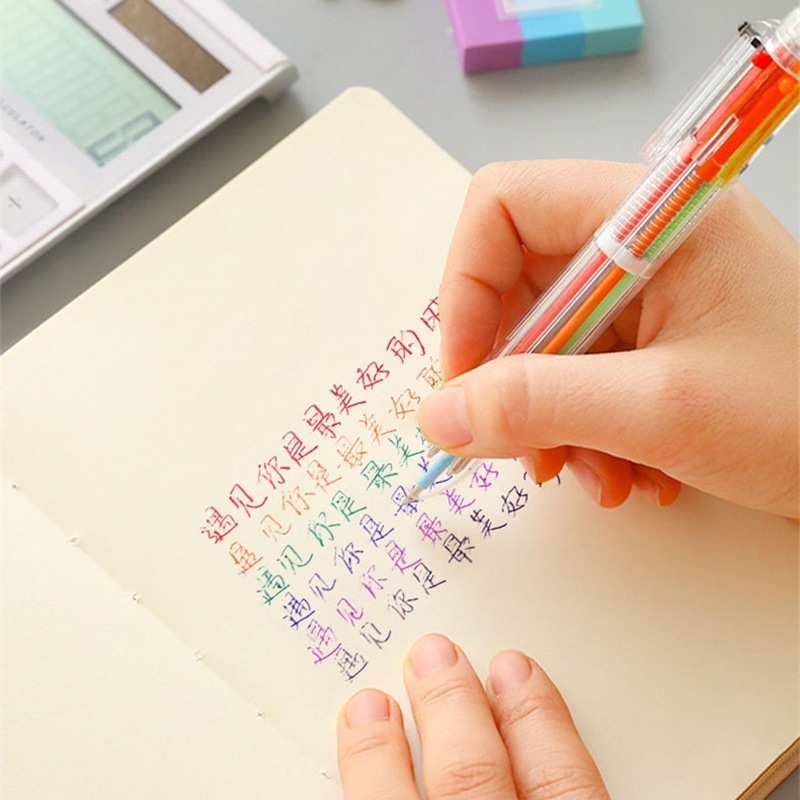 CULATOR
遇见你是最美好的
遇见你是最美好的
遇见你是最美
遇见你是最
遇见你是最美好
遇见你是最美好